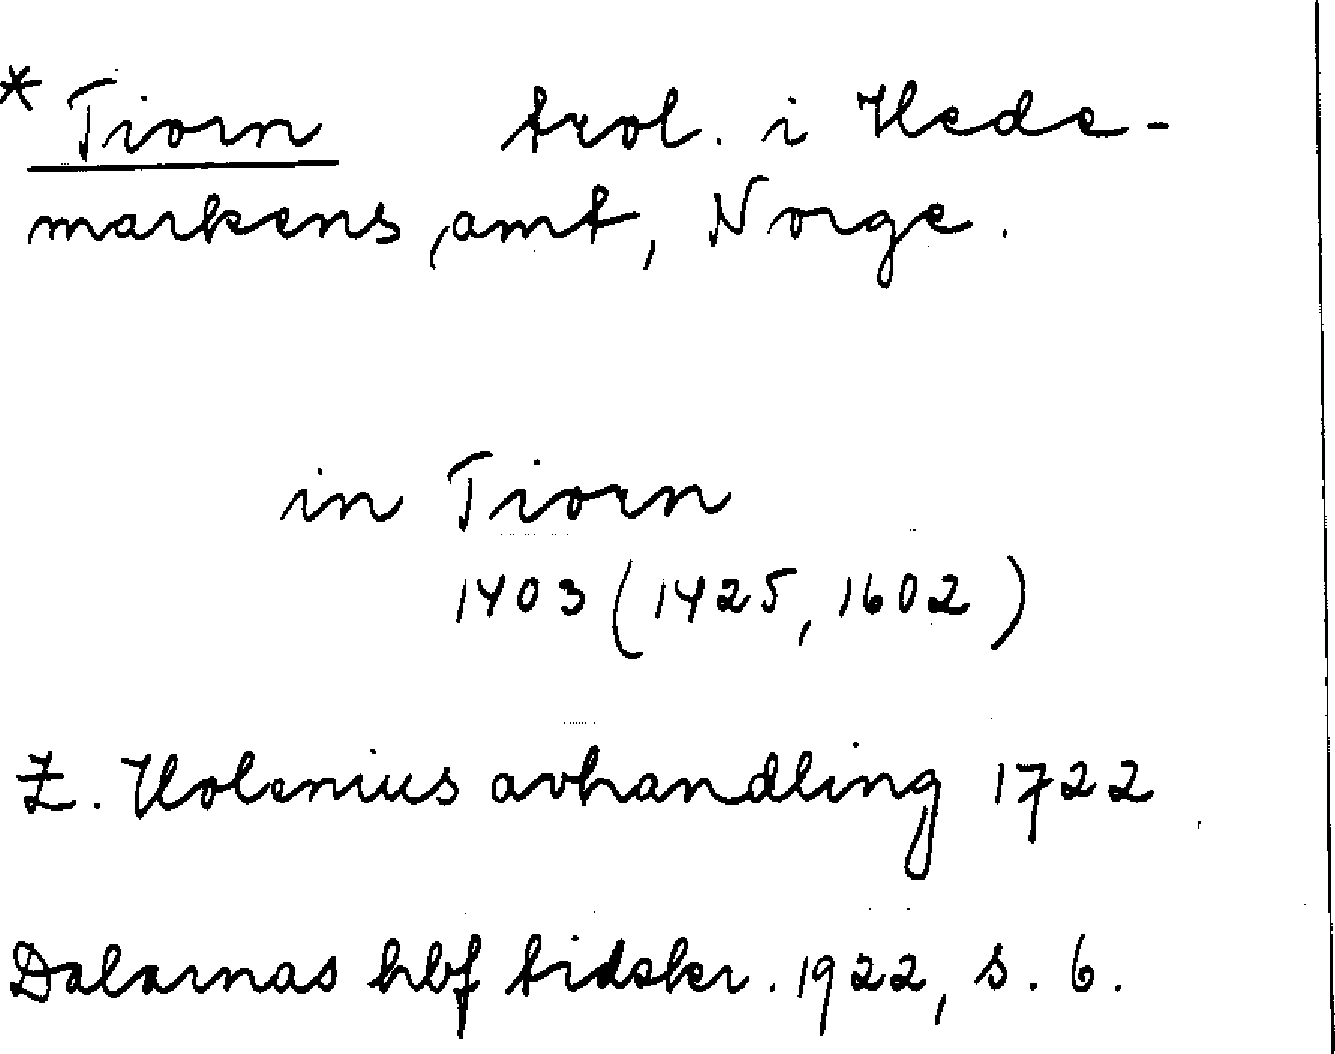 * Tiorn trol. i Hede-
markens amt, Norge.
in Tiorn
1403 (1425, 1602)
Z. Holenius avhandling 1722
Dalarnas hbf tidskr. 1922, s. 6.